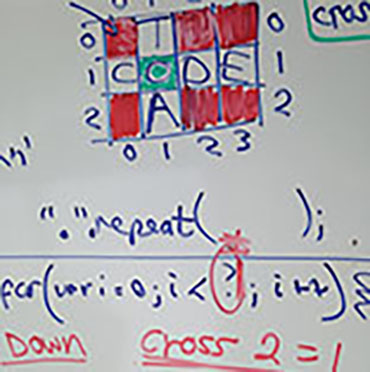 cros
0 T 0
1 C O D E 1
2 A 2
0 1 2 3
\n'
".".repeat( );
for(var i=0; i<?; i++){
DOWN Cross 2 = 1